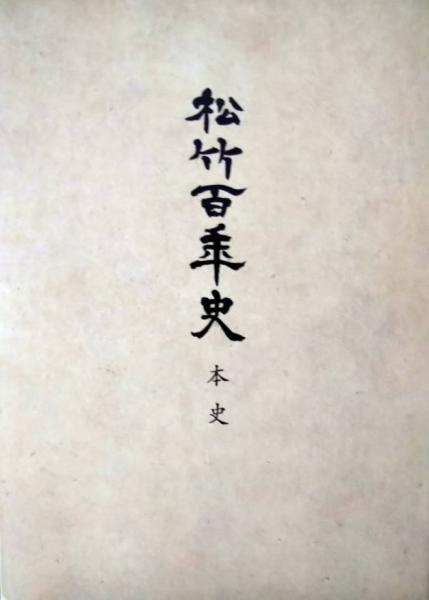 松竹百年史
本史